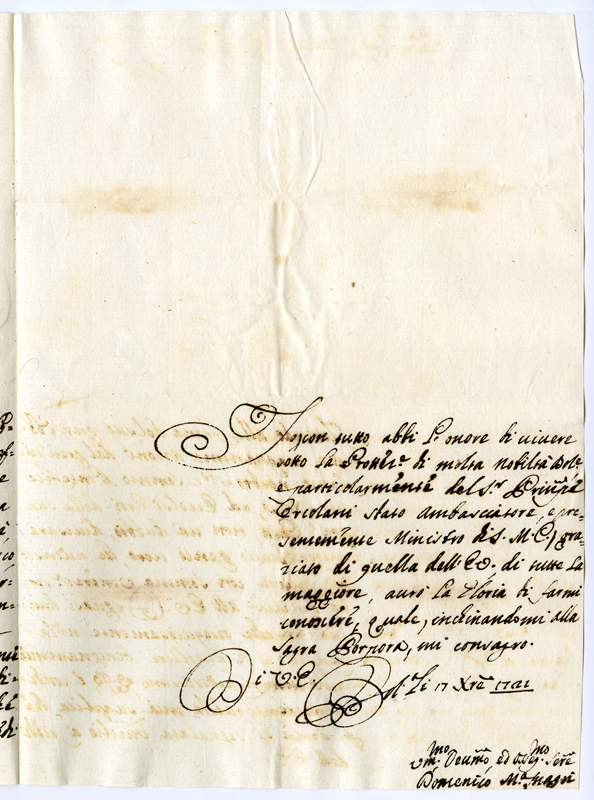 Io, con tutto abbi l'onore di vivere
sotto la Protte.e di molta nobiltà Bol.e
e particolarmente del S.r Principe
Ercolani stato Ambasciatore, e pre-
sentemente Ministro di S. M. C., gra-
ziato di quella dell'E.V. di tutte la
maggiore, aurò la Gloria di farmi
conoscere, quale, inchinandomi alla
Sagra Porpora, mi consagro.
Di V. E.
li 17 Xbre 1721
Um.mo Deu.mo ed Ser.e
Domenico M.a